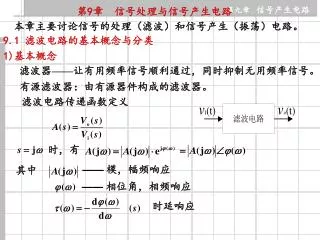 第9章 信号处理与信号产生电路
第九章 信号产生电路
本章主要讨论信号的处理（滤波）和信号产生（振荡）电路。
9.1 滤波电路的基本概念与分类
1)基本概念
滤波器——让有用频率信号顺利通过，同时抑制无用频率信号。
有源滤波器：由有源器件构成的滤波器。
滤波电路传递函数定义
Vi(t) 滤波电路 Vo(t)
A(s) = Vo(s) / Vi(s)
s = jω 时，有 A(jω) = |A(jω)|·e^jφ(ω) = |A(jω)|∠φ(ω)
其中 |A(jω)| —— 模，幅频响应
φ(ω) —— 相位角，相频响应
τ(ω) = − dφ(ω) / dω (s) 时延响应